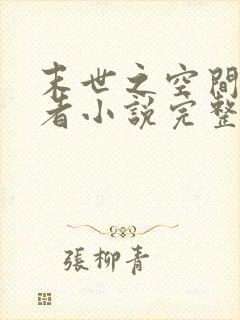 末世之空間
者小說完整
張柳青